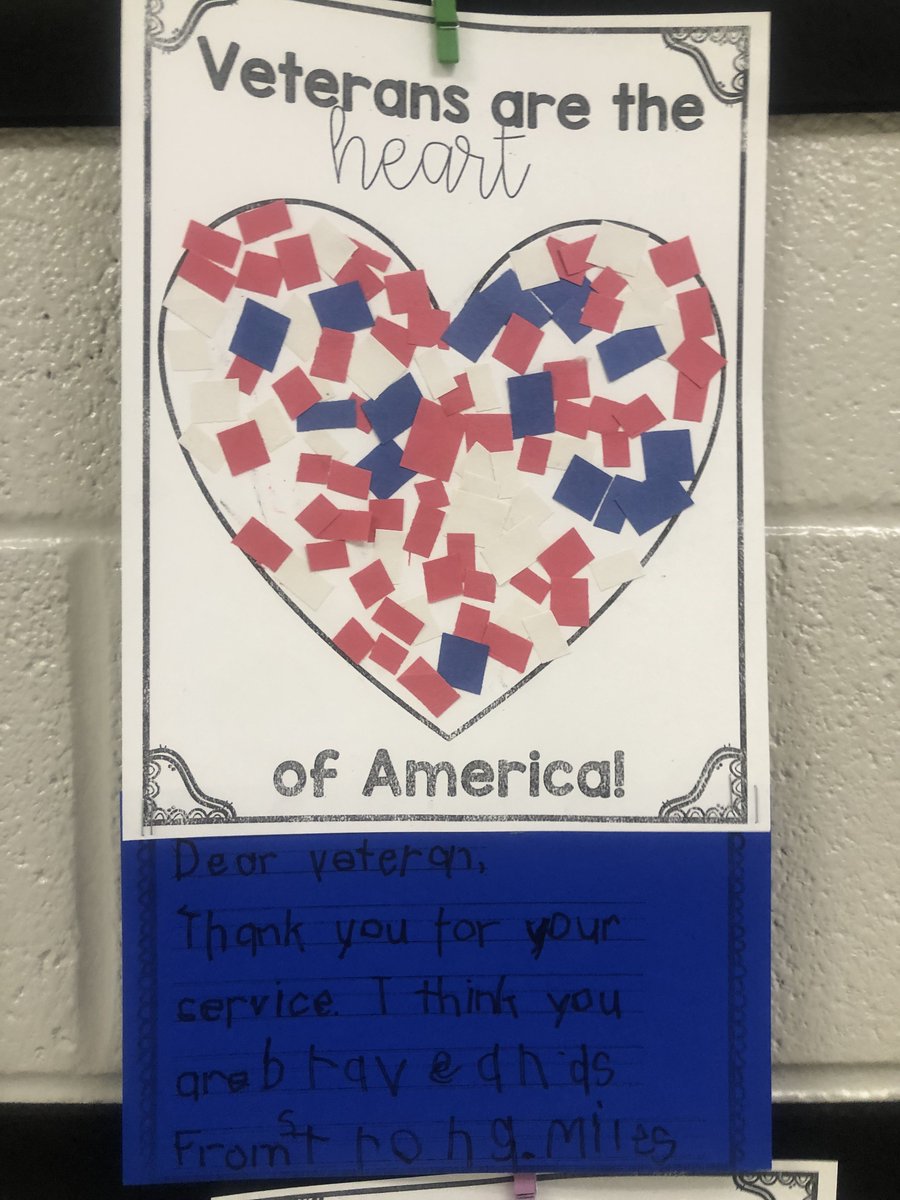 Veterans are the
heart
of America!
Dear veteran,
Thank you for your
service. I think you
are brave ands
From strong. Miles